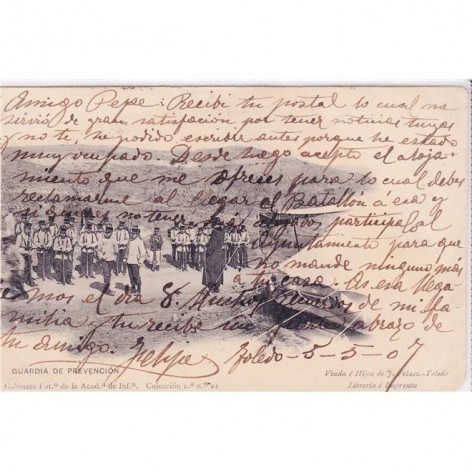 Amigo Pepe: Recibi tu postal lo cual me
servió de gran satisfacción por tener noticias tuyas
y no te, he podido escribir antes porque he estado
muy ocupado. Desde luego acepto el aloja-
miento que me ofreces para lo cual debes
reclamarme al llegar el Batallón á esa y
si quieres no tener más alojados participaselo al
Ayuntamiento para que
no mande ninguno más
a tu casa. As esa llega-
remos el dia 8. Muchos recuerdos de mi fa-
milia y tu recibe un fuerte abrazo de
tu amigo. Felipe
Toledo-5-5-07
GUARDIA DE PREVENCIÓN
Gabinete Fot.º de la Acad.ª de Inf.ª. Colección 2.ª n.º 21
Viuda é Hijos de J. Pelaez.-Toledo
Librería é Imprenta